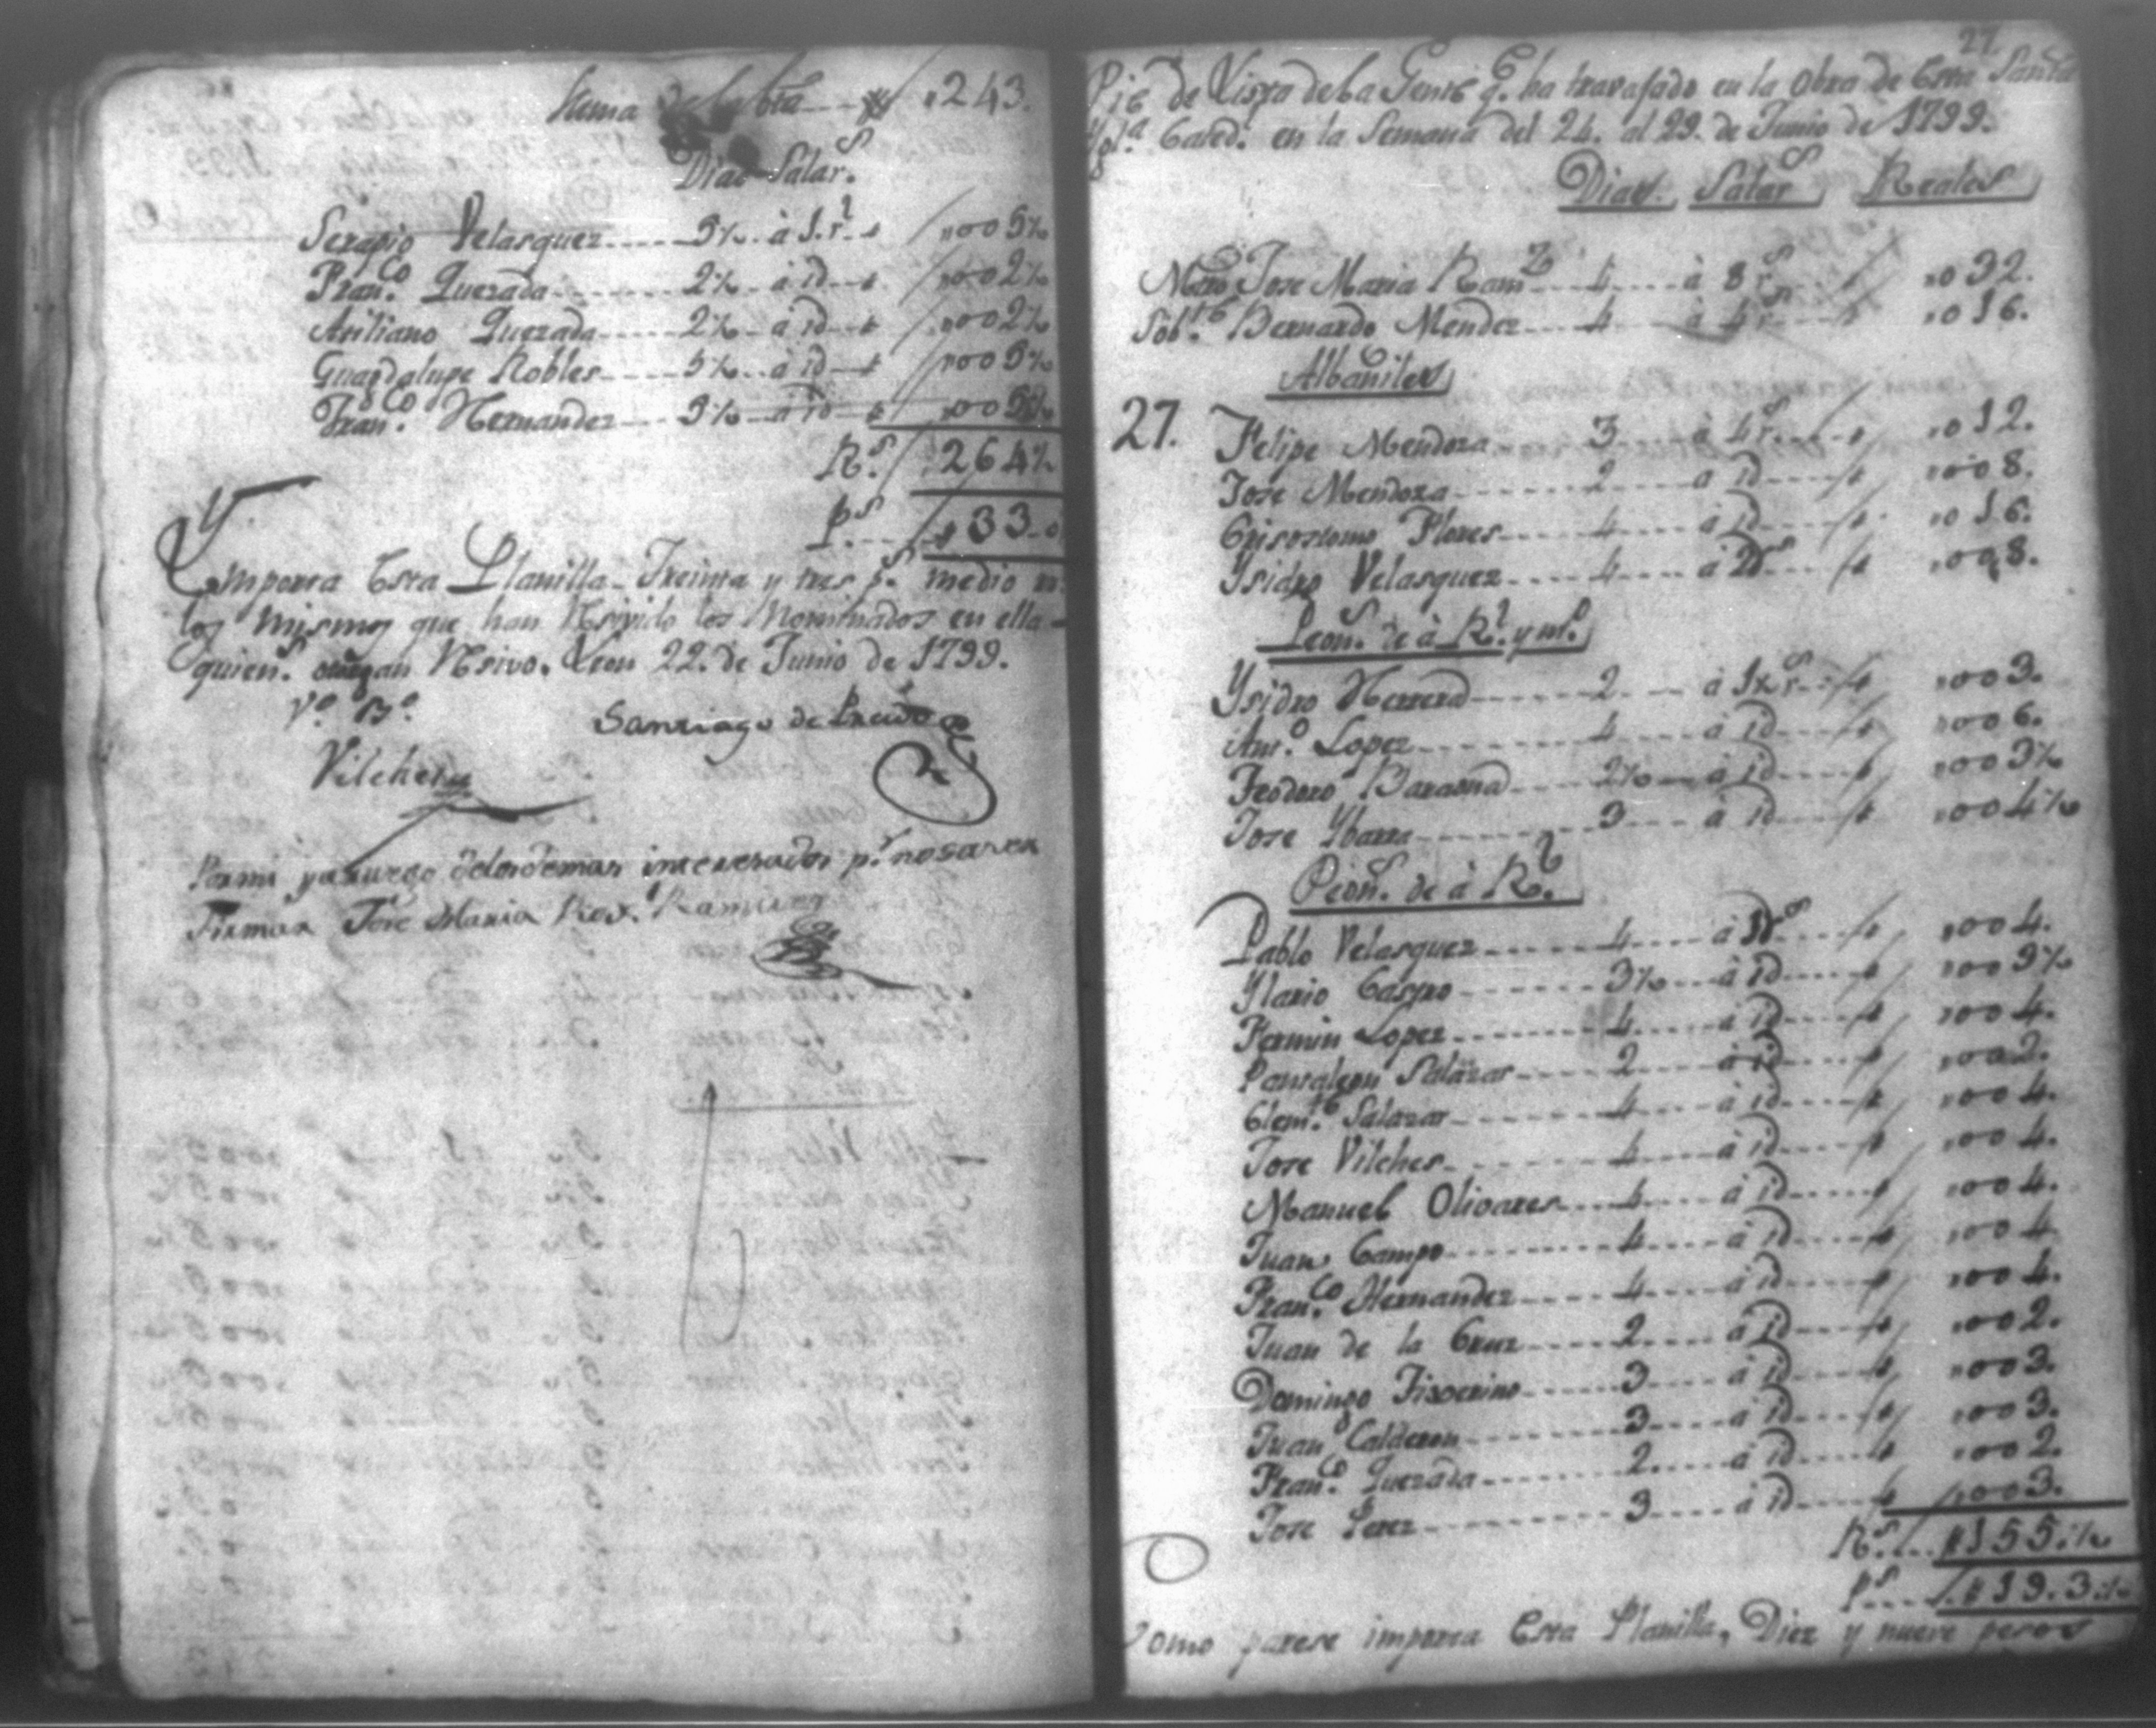 Suma de la bta # "243.
Dias Salar.s
Serapio Velasquez 5½ à 1.rl "005½
Fran.co Quezada 2½ à id "002½
Atiliano Quezada 2½ à id "002½
Guadalupe Robles 5½ à id "005½
Fran.co Hernandez 5½ à id "005½
R.s 264½
p.s "33-0
Ymporta Esta Planilla Treinta y tres p.s medio r.
los mismos que han Resivido los Nominados en ella
quien.s otorgan Resivo. Leon 22. de Junio de 1799.
V.o B.o
Santiago de
Vilches
Por mi y a ruego de los demas interesados p.r no saver
Firmar Jose Maria Rod.z Ramirez
27.
Pie de Lista de la Gente q.e ha travajado en la Obra de Esta Santa
Ygl.a Cated. en la Semana del 24. al 29. de Junio de 1799.
Dias. Salar.s Reales
Mtro Jose Maria Ram.z 4 à 8 r.s "032.
Sob.te Bernardo Mendez 4 à 4 r.s "016.
Albañiles
27. Felipe Mendoza 3 à 4 r.s "012.
Jose Mendoza 2 à id "008.
Crisostomo Flores 4 à id "016.
Ysidro Velasquez 4 à 2 r.s "008.
Peon.s de à R.l y m.o
Ysidro Herrera 2. à 1½ r.s "003.
Ant.o Lopez 4 à id "006.
Teodoro Baraona 2½ à id "003½
Jose Ybarra 3 à id "004½
Peon.s de à R.l
Pablo Velasquez 4 à 1 r.s "004.
Ylario Castro 3½ à id "003½
Fermin Lopez 4 à id "004.
Pantaleon Salazar 2 à id "002.
Clem.te Salazar 4 à id "004.
Jose Vilches 4 à id "004.
Manuel Olivares 4 à id "004.
Juan Campo 4 à id "004.
Fran.co Hernandez 4 à id "004.
Juan de la Cruz 2 à id "002.
Domingo 3 à id "003.
Juan Calderon 3 à id "003.
Fran.co Quezada 2. à id "002.
Jose Perez 3 à id "003.
R.s "155.½
p.s "19.3.½
Como parese importa Esta Planilla, Diez y nueve pesos